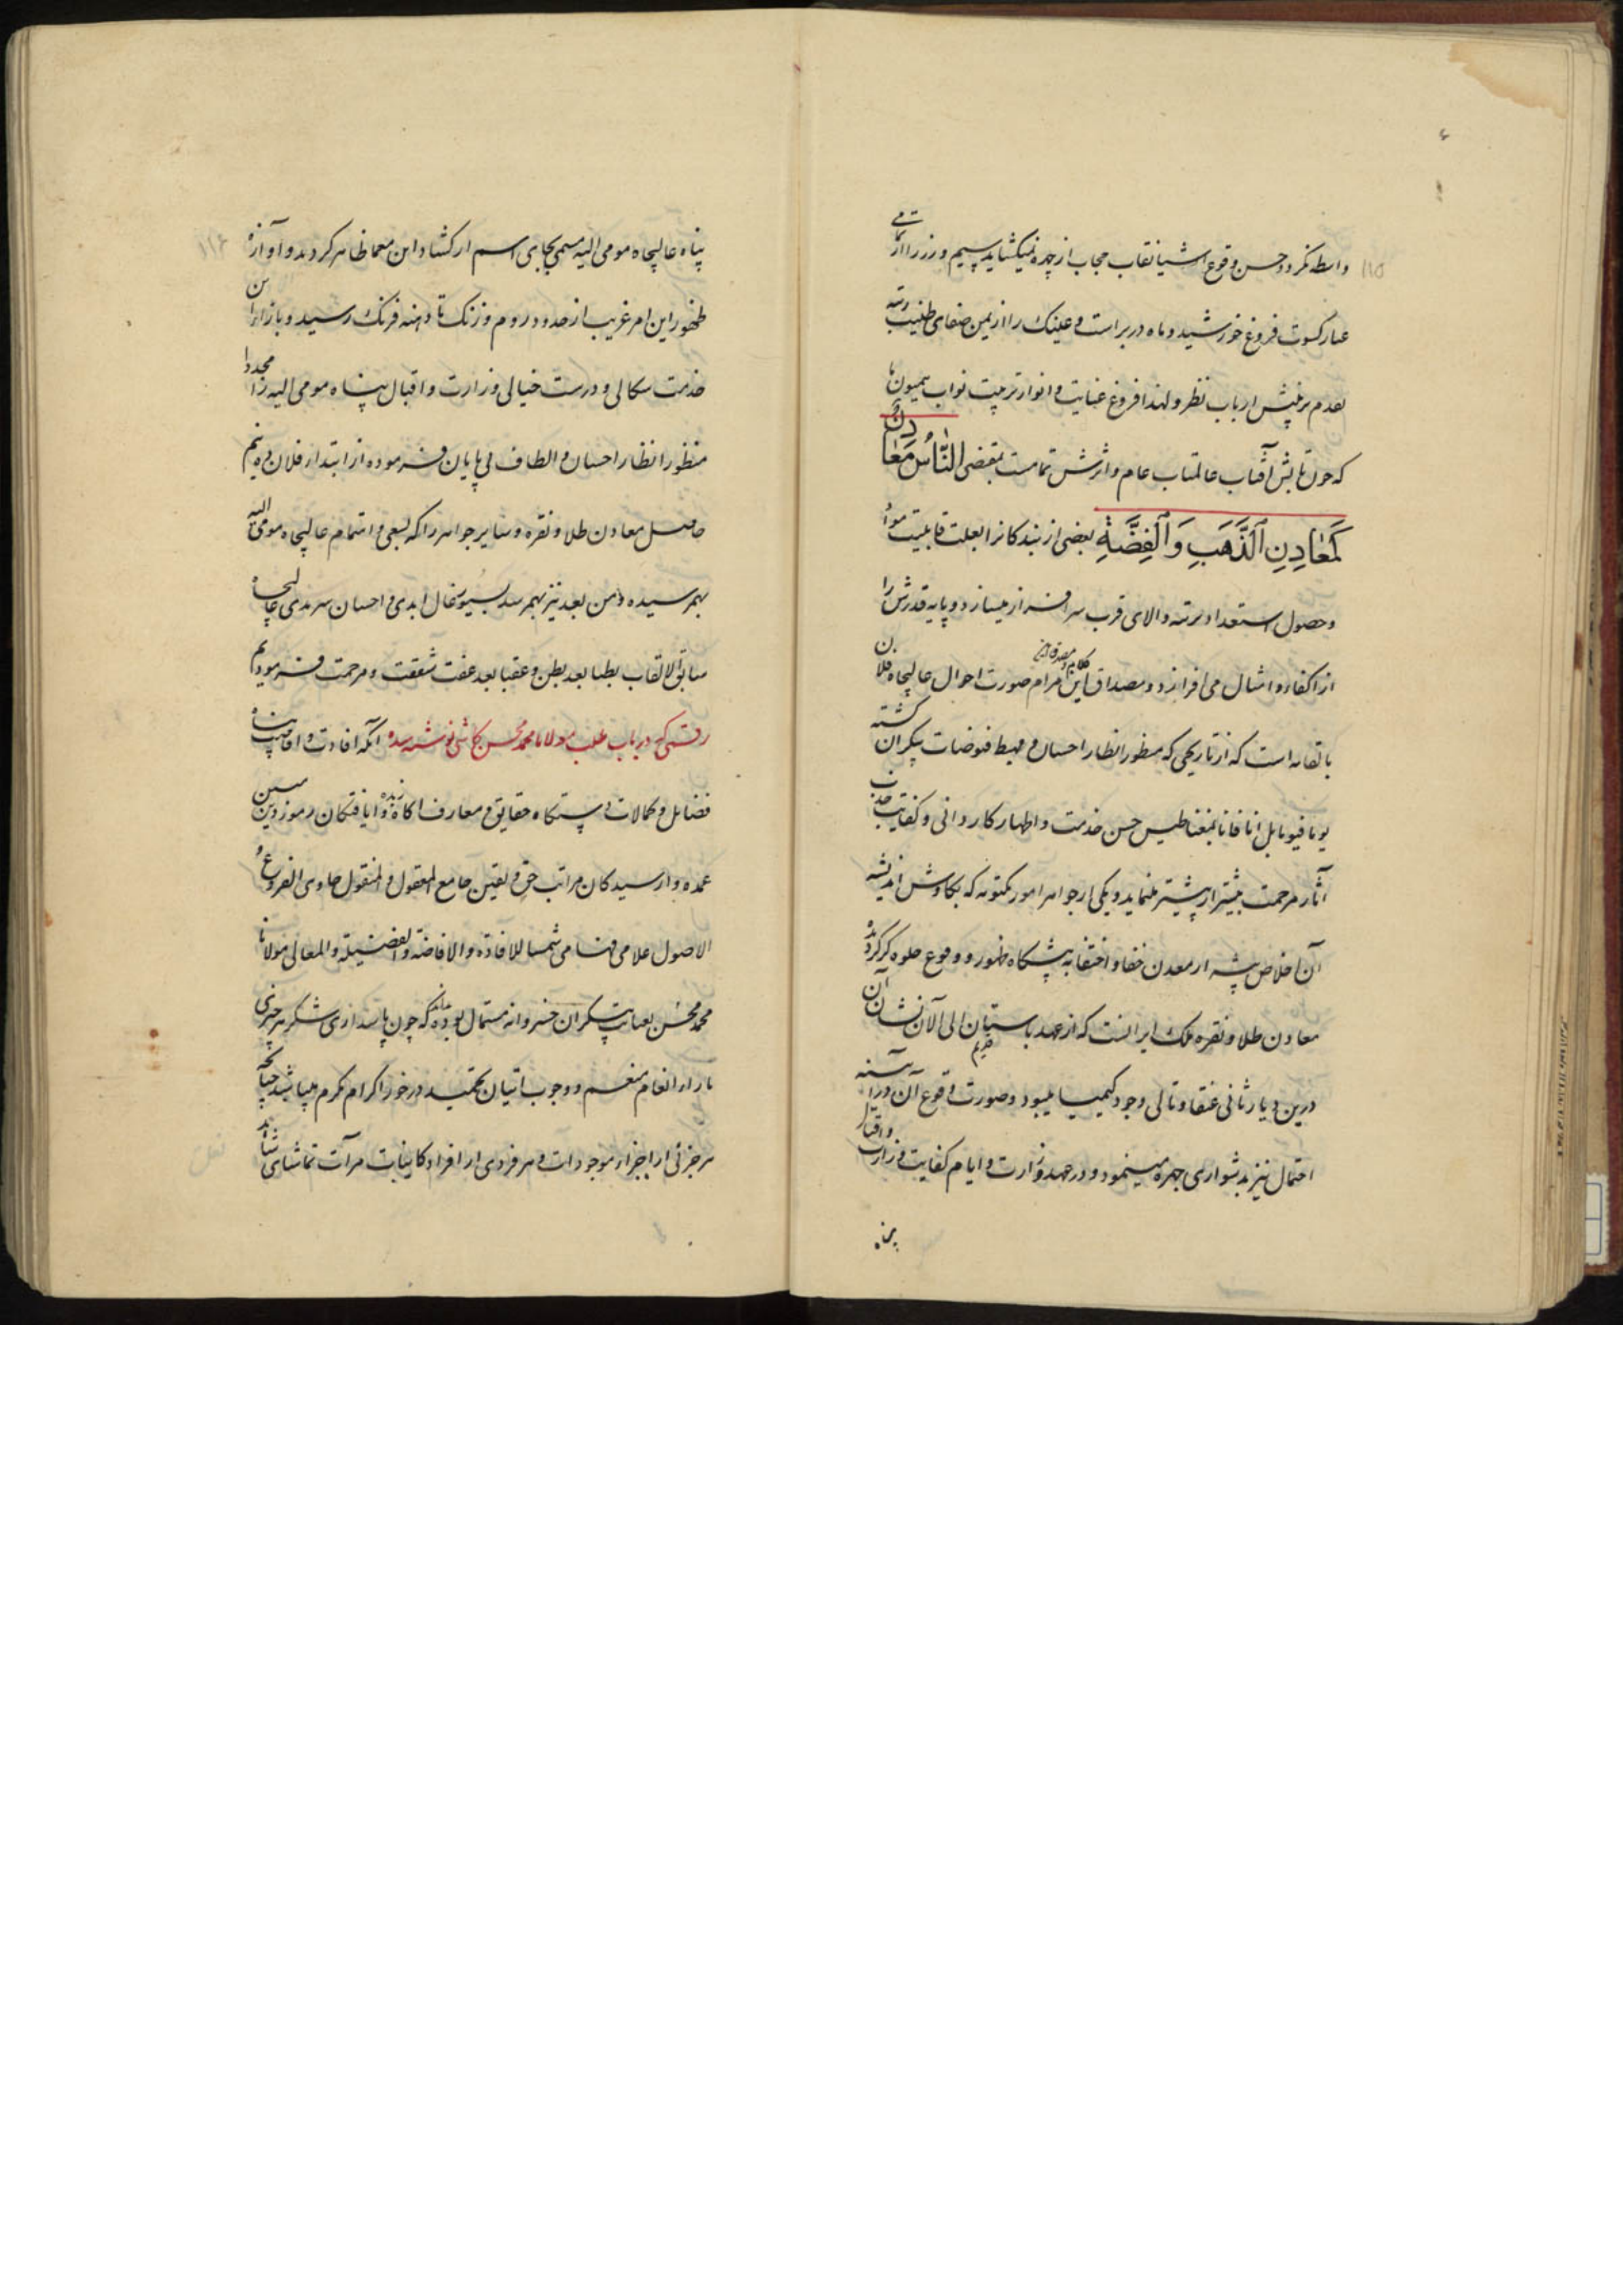 واسطه نگردد حسن وقوع اشیا نقاب حجاب از چهره نمیگشاید سیم و زر را از تمامی
عیار کسوت فروغ خورشید و ماه در بر است و عینک را از یمن صفای طینت رتبه
تقدم بر پیش ارباب نظر و لهذا فروغ عنایت و انوار تربیت نواب همیون ما
که چون تابش آفتاب عالمتاب عام و اثرش تمامست بمقتضی النَّاسُ مَعَادِنُ
كَمَعَادِنِ الذَّهَبِ وَ الْفِضَّةِ بعضی از بندگانرا بعلت قابلیت مواد
و حصول استعداد برتبه والای قرب سرافراز میسازد و پایه قدرش را
از اکفا و امثال می افرازد و مصداق این کلام مرام صورت احوال عالیجاه فلان
با تقانه است که از تاریخی که منظور انظار احسان و مهبط فیوضات بیکران گشته
یوما فیوما بل انا فانا بمغناطیس حسن خدمت و اظهار کاردانی و کفایت جذب
آثار مرحمت بیشتر از پیشتر مینماید و یکی از جواهر امور مکتومه که بکاوش اندیشه
آن اخلاص پیشه از معدن خفا و اختفا به پیشگاه ظهور و وقوع جلوه گر گردیده
معادن طلا و نقره ملک ایرانست که از عهد باستان الی الآن نشان آن
درین دیار ثانی عنقا و تالی وجود کیمیا میبود و صورت وقوع آن در آینه
احتمال نیز بدشواری چهره مینمود و در عهد وزارت و ایام کفایت وزارت و اقبال
پناه
پناه عالیجاه مومی الیه مسمی بجابی اسم از گشاد این معما ظاهر کردند و آوازه
ظهور این امر غریب از حدود روم و زنگ تا دامنه فرنگ رسید و بازاران
خدمت سکالی و درست خیالی وزارت و اقبال پناه مومی الیه را مجددا
منظور انظار احسان و الطاف بی پایان فرموده از ابتداء فلان ده نیم
حاصل معادن طلا و نقره و سایر جواهر را که بسعی و اهتمام عالیجاه مومی الیه
بهم رسیده و من بعد نیز بهم رسد بسیورغال ابدی و احسان سرمدی عالیجاه
سابق الالقاب بطنا بعد بطن و عقبا بعد عقب شفقت و مرحمت فرمودیم
رقمی که در باب طلب مولانا محمد محسن کاشی نوشته شده آنکه افادت و افاضت پناه
فضایل و کمالات دستگاه حقایق و معارف آگاه زبده یافتگان رموز دین مبین
عمده وارسیدگان مراتب حق و یقین جامع المعقول و المنقول حاوی الفروع و
الاصول علامی فهامی شمسا للافادة و الافاضة و الفضیلة و المعالی مولانا
محمد محسن بعنایت بیکران خسروانه مستمال بوده بداند که چون پاسداری شکر هر چیزی
بازاء انعام منعم و وجوب اتیان بتحمید در خور اکرام مکرم میباشد چنانچه
هر جزئی از اجزاء موجودات و هر فردی از افراد کاینات مرآت تماشای